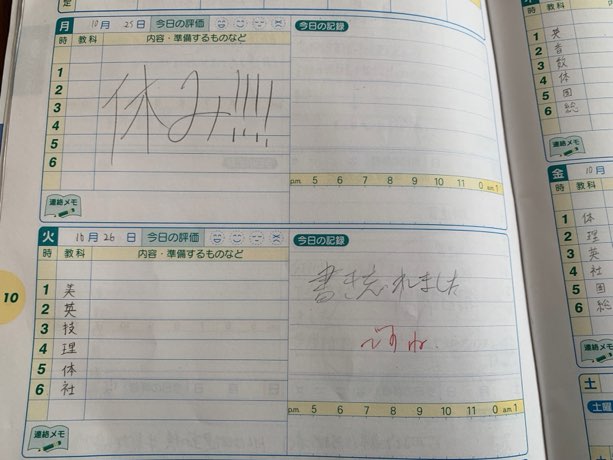 足
月 10月 25日 今日の評価
今日の記録
時 教科 内容・準備するものなど
1
2
3
4
5
6
休み!!!!
連絡メモ
pm. 5 6 7 8 9 10 11 0 am.1
火 10月 26日 今日の評価
今日の記録
時 教科 内容・準備するものなど
1 美
2 英
3 技
4 理
5 体
6 社
書き忘れました
連絡メモ
pm. 5 6 7 8 9 10 11 0 am.1
10
1 英
2 音
3 数
4 体
5 国
6 総
連絡メモ
金 10月
時 教科
1 体
2 理
3 英
4 社
5 国
6 総
連絡メモ
土
土曜